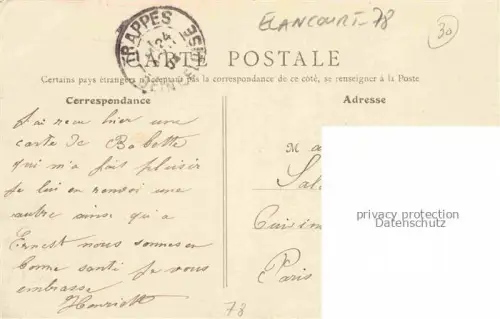 ÉLANCOURT-78
30
TRAPPES
24
SEINE ET OISE
CARTE POSTALE
Certains pays étrangers n'acceptant pas la correspondance de ce côté, se renseigner à la Poste
Correspondance
Adresse
J'ai reçu hier une
carte de Babette
qui m'a fait plaisir
Je lui en renvoi une
autre ainsi qu'a
Ernest nous sommes en
bonne santé Je vous
embrasse
Henriette
M
Paris
privacy protection
Datenschutz
78